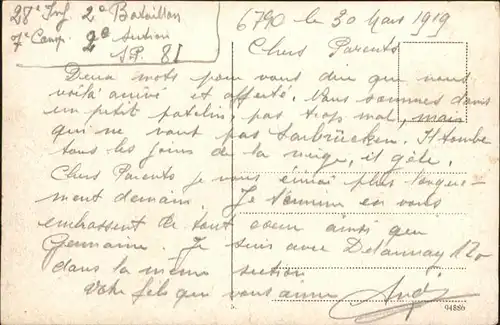 28e Inf 2e Bataillon
7e Comp. 2e Section
S.P. 81
le 30 Mars 1919
Chers Parents
Deux mots pour vous dire que nous
voilà arrivé et affecté. Nous sommes dans
un petit patelin, pas trop mal, mais
qui ne vaut pas Sarbrücken. Il tombe
tous les jours de la neige, il gèle.
Chers Parents je vous écrirai plus longue-
ment demain. Je termine en vous
embrassent de tout coeur ainsi que
Germaine. Je suis avec Delaunay
dans la même section
Votre fils qui vous aime
04880